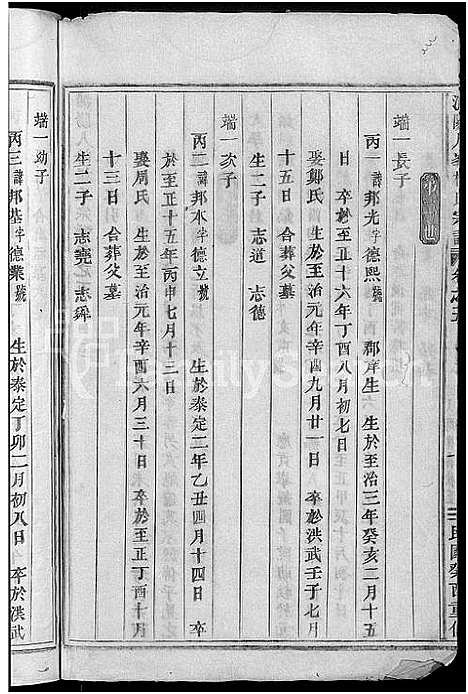 端一長子
丙一 諱邦光字德熙號 郡庠生 生於至治三年癸亥二月十五
日 卒於至正十六年丁酉八月初七日
娶鄭氏 生於至治元年辛酉九月廿一日 卒於洪武壬子七月
十五日合葬父墓
生二子 志道 志德
端一次子
丙二 諱邦本字德立號 生於泰定二年乙丑四月十四日 卒
於至正十五年丙申七月十三日
娶周氏 生於至治元年辛酉六月三十日 卒於至正丁酉十月
十三日引合葬父墓
生二子 志堯 志舜
端一幼子
丙三 諱邦基字德業號 生於泰定丁卯二月初八日 卒於洪武
民國癸酉重修